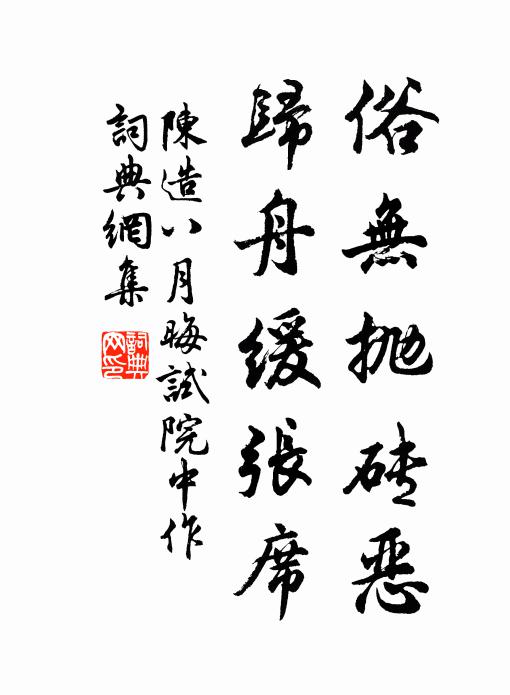 俗無拋磚惡
歸舟緩張席
陳造八月晦試院中作
詞典網集
詞典網印